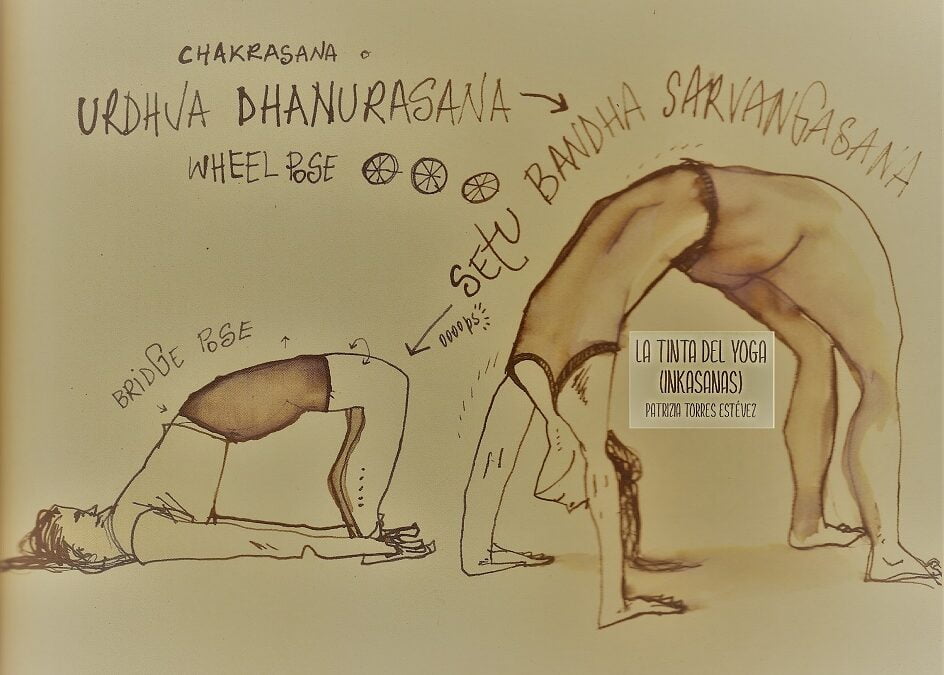 CHAKRASANA o
URDHVA DHANURASANA →
WHEEL POSE
SETU BANDHA SARVANGASANA
oooops
BRIDGE POSE
LA TINTA DEL YOGA
(INKASANAS)
PATRIZIA TORRES ESTÉVEZ